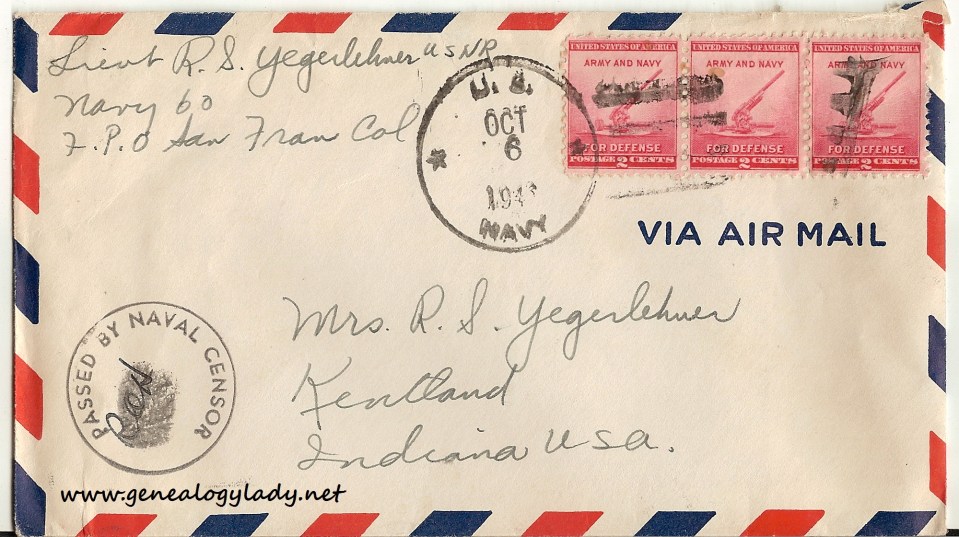 Lieut R. S. Yegerlehner USNR
Navy 60
F.P.O San Fran Cal
U. S.
OCT
6
1943
NAVY
UNITED STATES OF AMERICA
ARMY AND NAVY
FOR DEFENSE
POSTAGE 2 CENTS
UNITED STATES OF AMERICA
ARMY AND NAVY
FOR DEFENSE
POSTAGE 2 CENTS
UNITED STATES OF AMERICA
ARMY AND NAVY
FOR DEFENSE
POSTAGE 2 CENTS
VIA AIR MAIL
Mrs. R. S. Yegerlehner
Kentland
Indiana USA.
PASSED BY NAVAL CENSOR
www.genealogylady.net